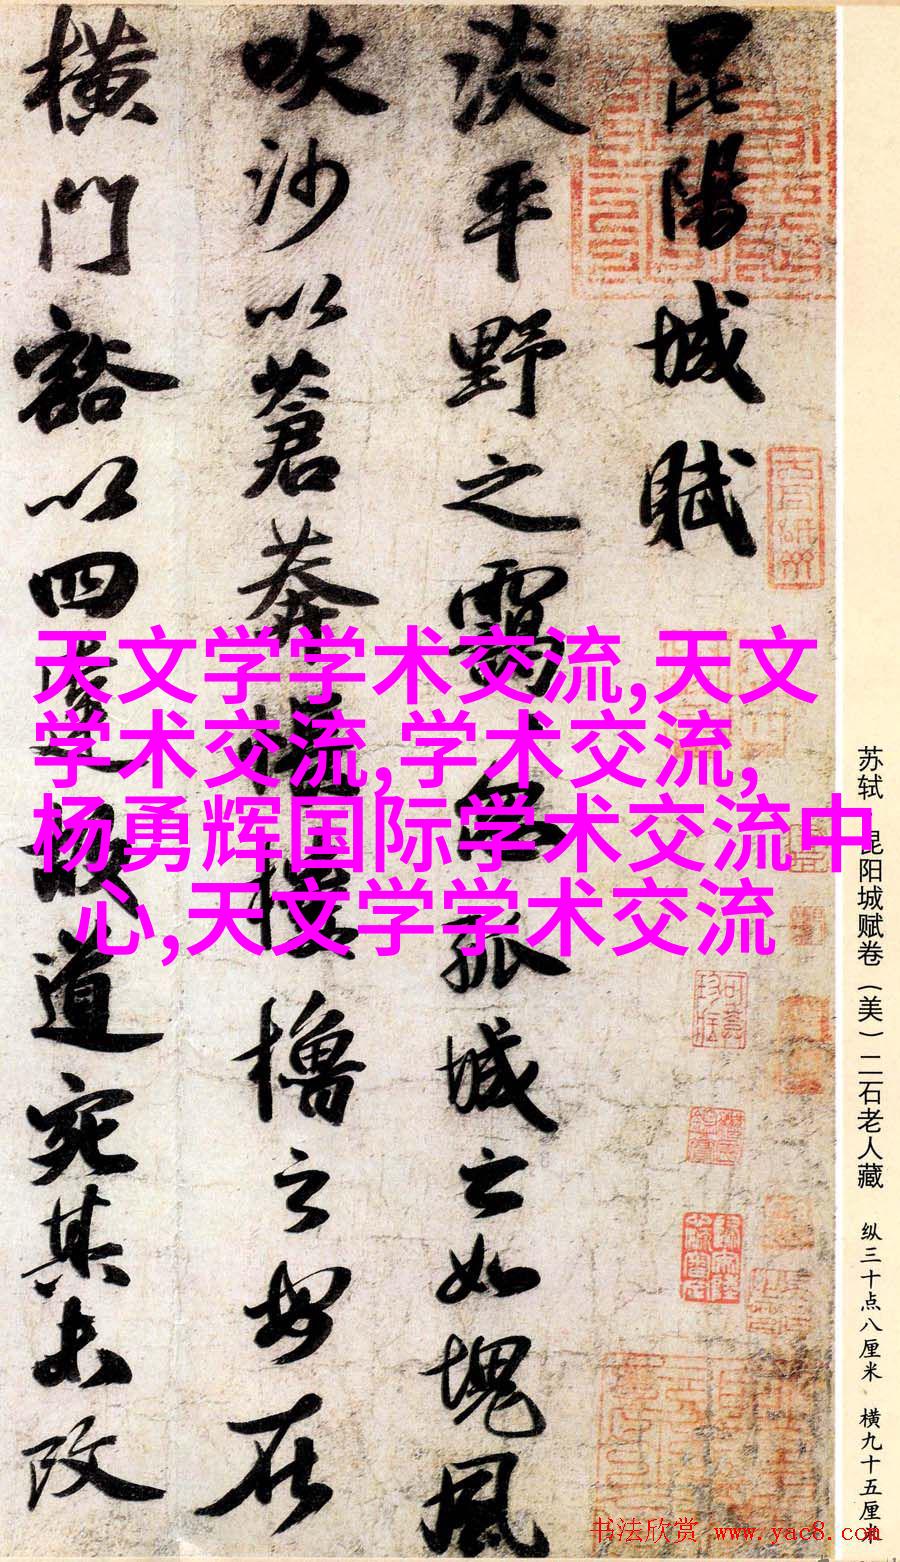 昆陽城賦
淡平野之靄々忽孤城之如塊風
吹沙以蒼莽悵樓櫓之安在
橫門豁以四達故道宛其未改
天文学学术交流,天文
学术交流,学术交流,
杨勇辉国际学术交流中
心,天文学学术交流
苏轼 昆阳城赋卷（美）二石老人藏 纵三十点八厘米 横九十五厘米
书法欣赏 www.yac8.com